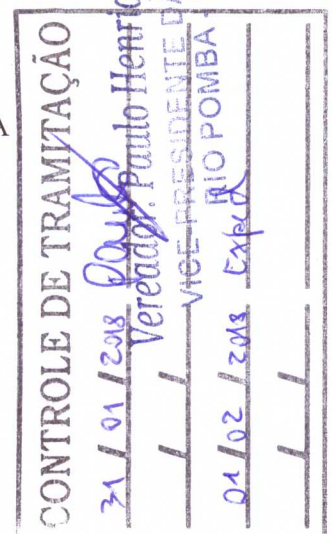 A
CONTROLE DE TRAMITAÇÃO
31 / 01 / 2018
Vereador: Paulo Henri
VICE-PRESIDENTE DA
RIO POMBA
/ /
01 / 02 / 2018 Exped
/ /